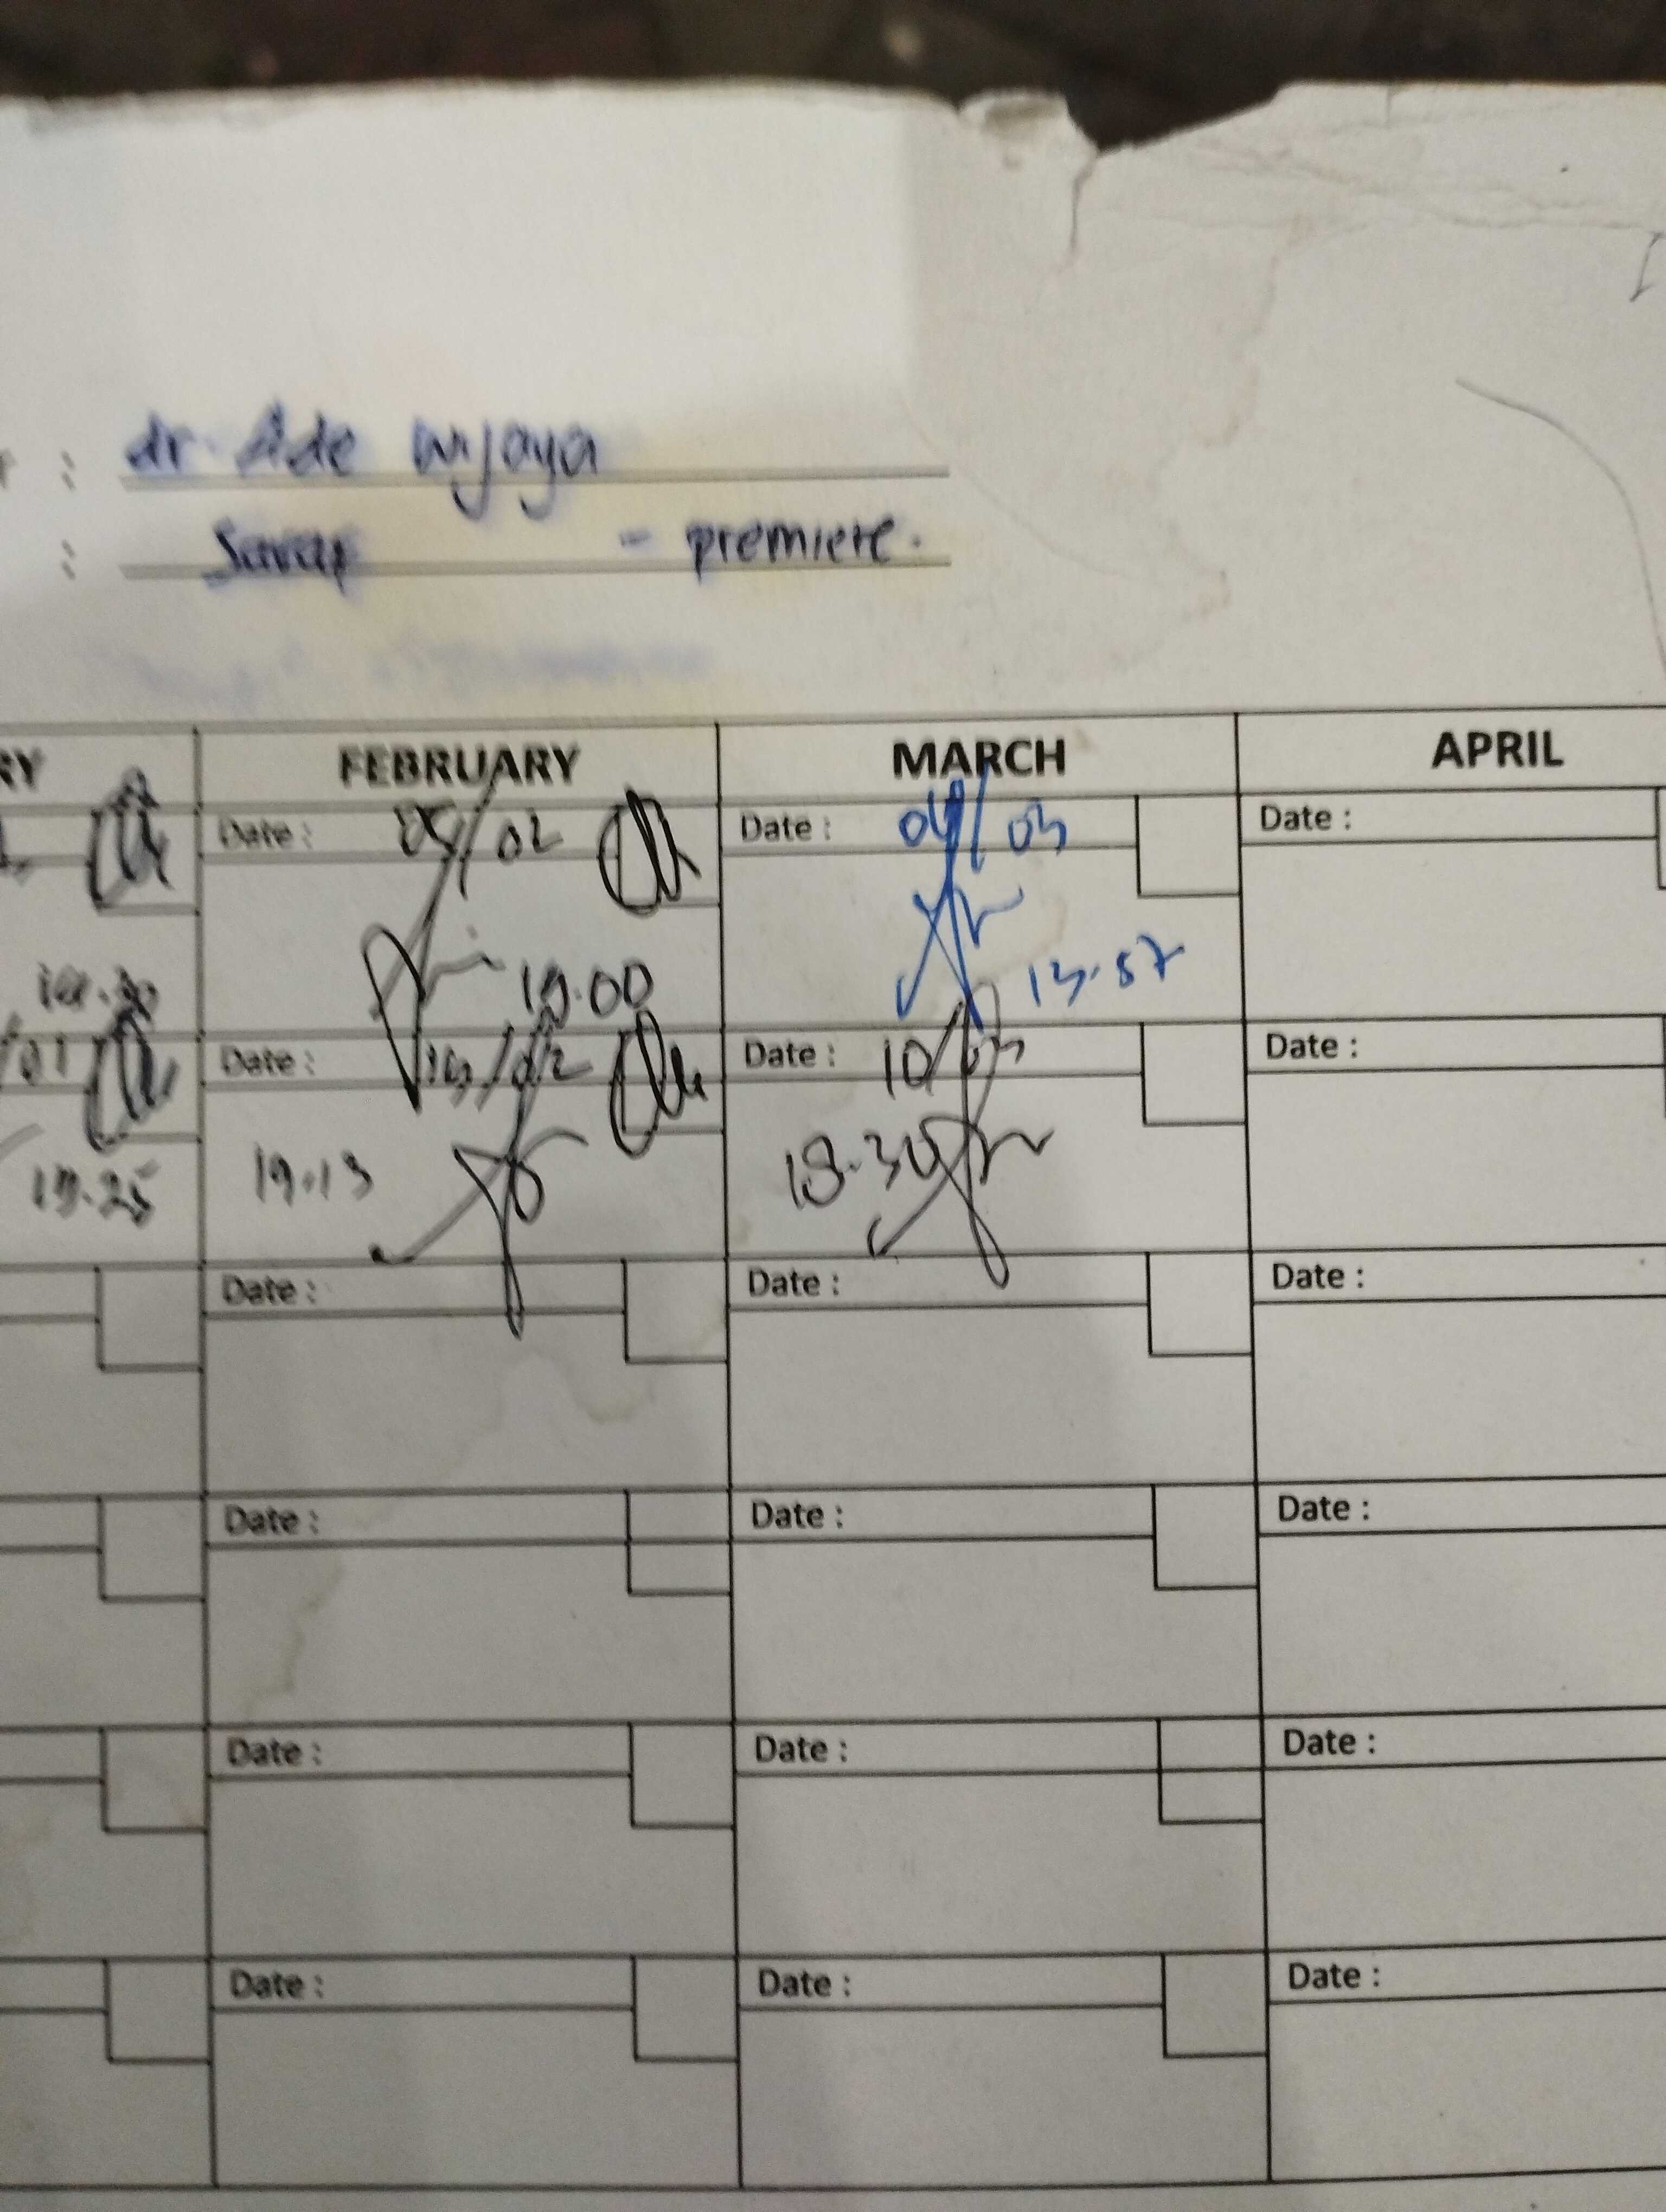 : dr. Ade wijaya
: Saraf - premiere.
RY FEBRUARY MARCH APRIL
Date : 05/02 Date : 04/03 Date :
19.00 13.57
/01 Date : /02 Date : 10/03 Date :
19.25 19.13 18.30
Date : Date : Date :
Date : Date : Date :
Date : Date : Date :
Date : Date : Date :